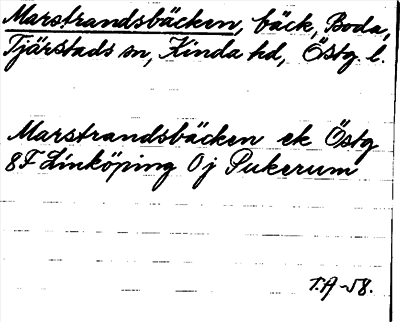 Marstrandsbäcken, bäck, Boda,
Tjärstads sn, Kinda hd, Östg. l.
Marstrandsbäcken ek Östg
8F Linköping 0j Pukerum
T.A -58.